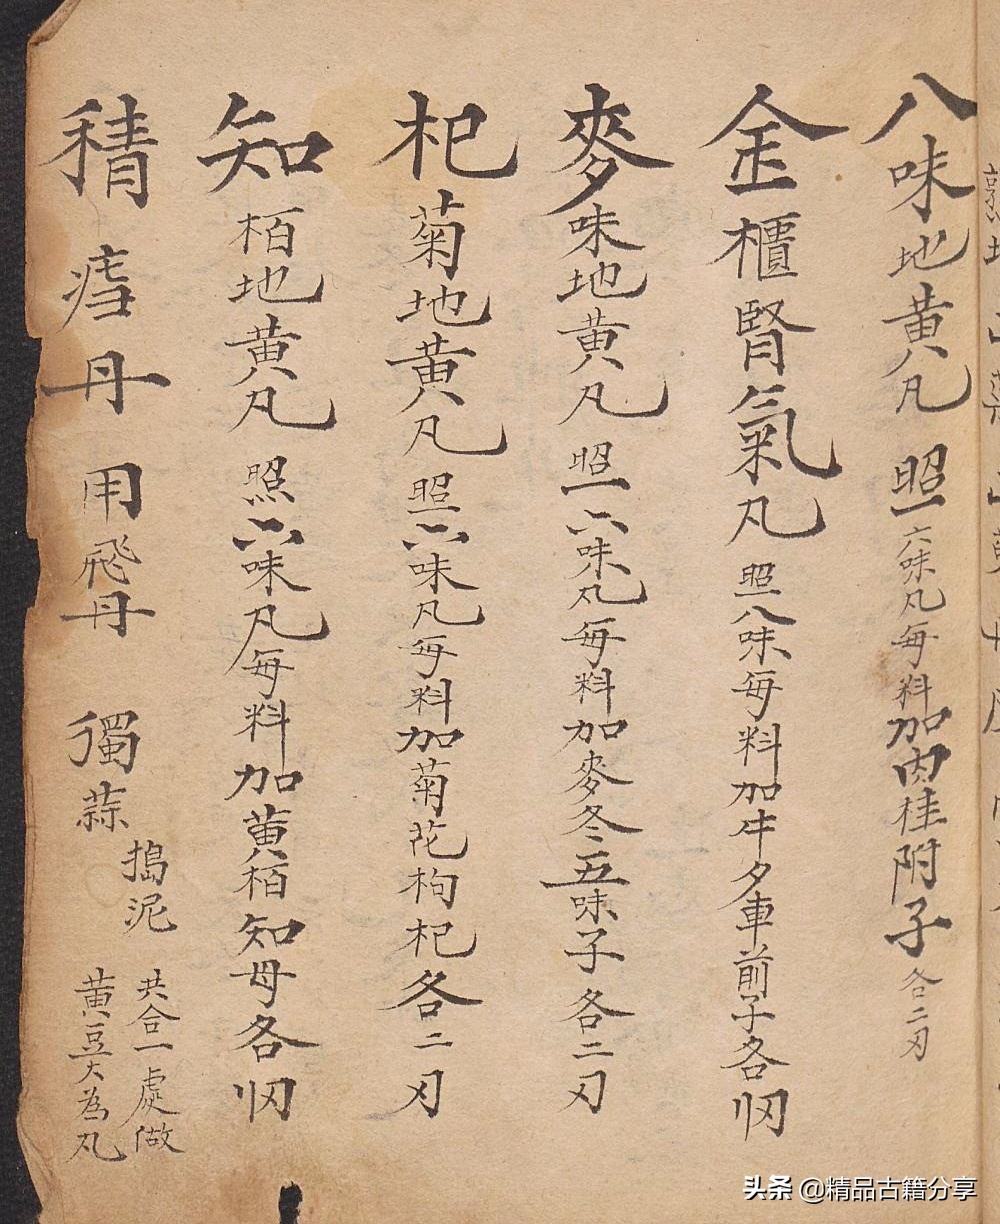 八味地黃凡 照六味凡每料加肉桂附子各二刃
金櫃腎氣凡 照八味每料加牛夕車前子各刅
麥味地黃凡 照六味凡每料加麥冬五味子各二刃
杞菊地黃凡 照六味凡每料加菊花枸杞各二刃
知栢地黃凡 照六味凡每料加黃栢知母各刅
稍 丹 用飛丹 獨蒜
搗泥
共合一處做
黃豆大為丸
头条 @精品古籍分享